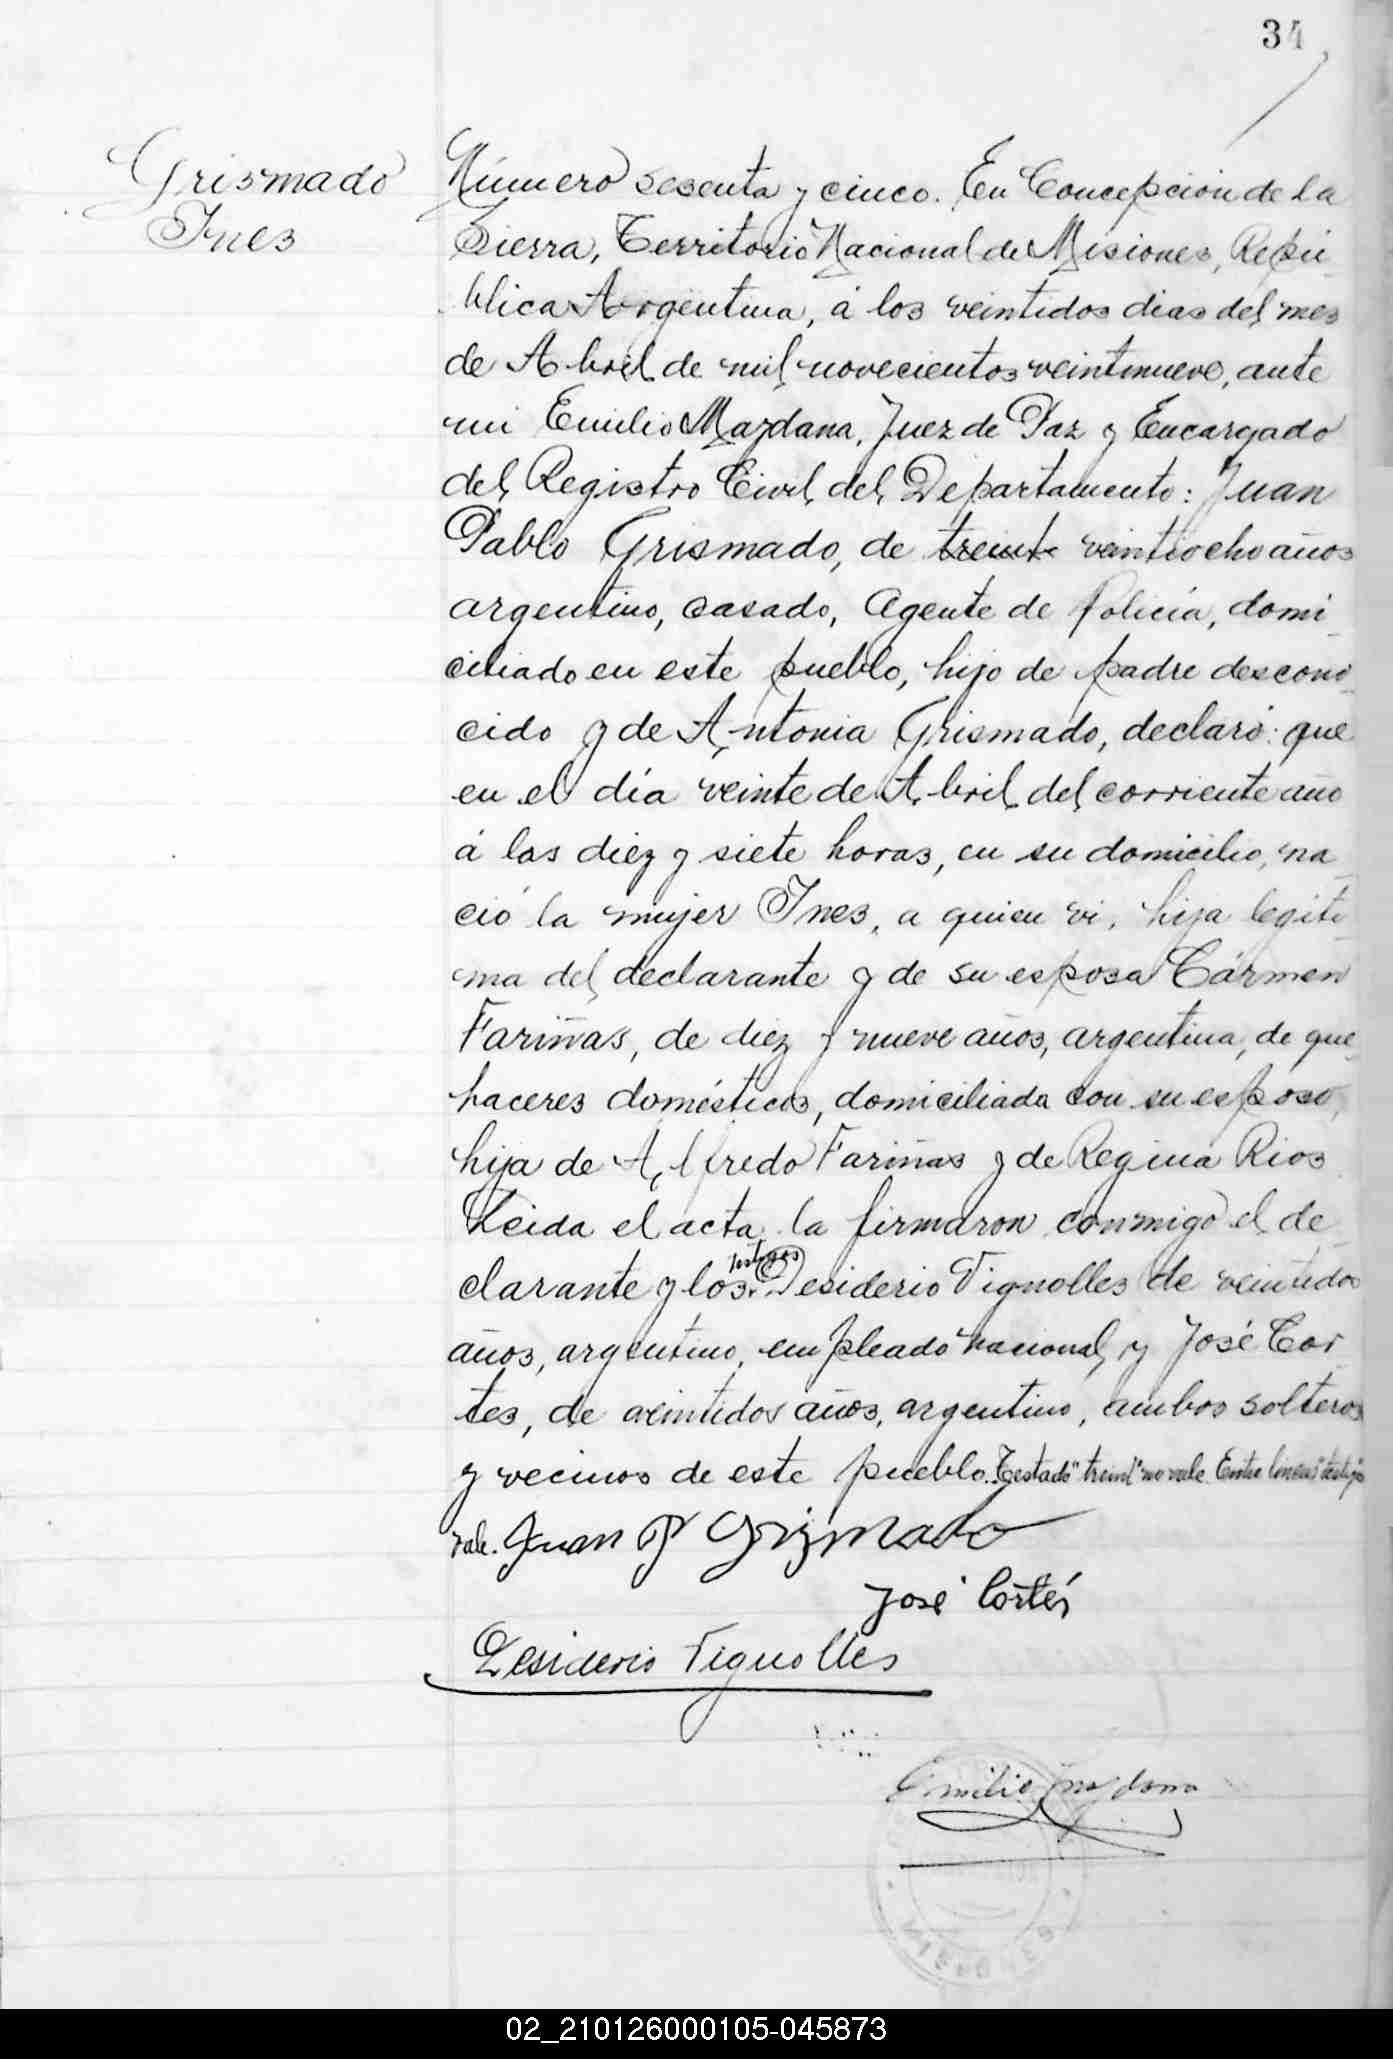 34
Grismado
Ines
Número sesenta y cinco. En Concepción de la
Sierra, Territorio Nacional de Misiones, Repú-
blica Argentina, á los veintidos dias del mes
de Abril de mil novecientos veintinueve, ante
mi Emilio Maydana, Juez de Paz y Encargado
del Registro Civil del Departamento: Juan
Pablo Grismado, de treint veintiocho años
argentino, casado, Agente de Policía, domi-
ciliado en este pueblo, hijo de padre descono-
cido y de Antonia Grismado, declaró: que
en el día veinte de Abril del corriente año
á las diez y siete horas, en su domicilio, na-
ció la mujer Ines, a quien vi, hija legiti-
ma del declarante y de su esposa Cármen
Fariñas, de diez y nueve años, argentina, de que-
haceres domésticos, domiciliada con su esposo,
hija de Alfredo Fariñas y de Regina Rios
Leida el acta, la firmaron conmigo el de-
testigos
clarante y los Desiderio Vignolles de veintidos
años, argentino, empleado nacional, y José Cor-
tes, de veintidos años, argentino, ambos solteros
y vecinos de este pueblo. Testado "treint" no vale. Entre lineas "testigos"
vale. Juan P Grizmado
José Cortés
Desiderio Vignolles
Emilio Maydana
MISIONES
02_210126000105-045873